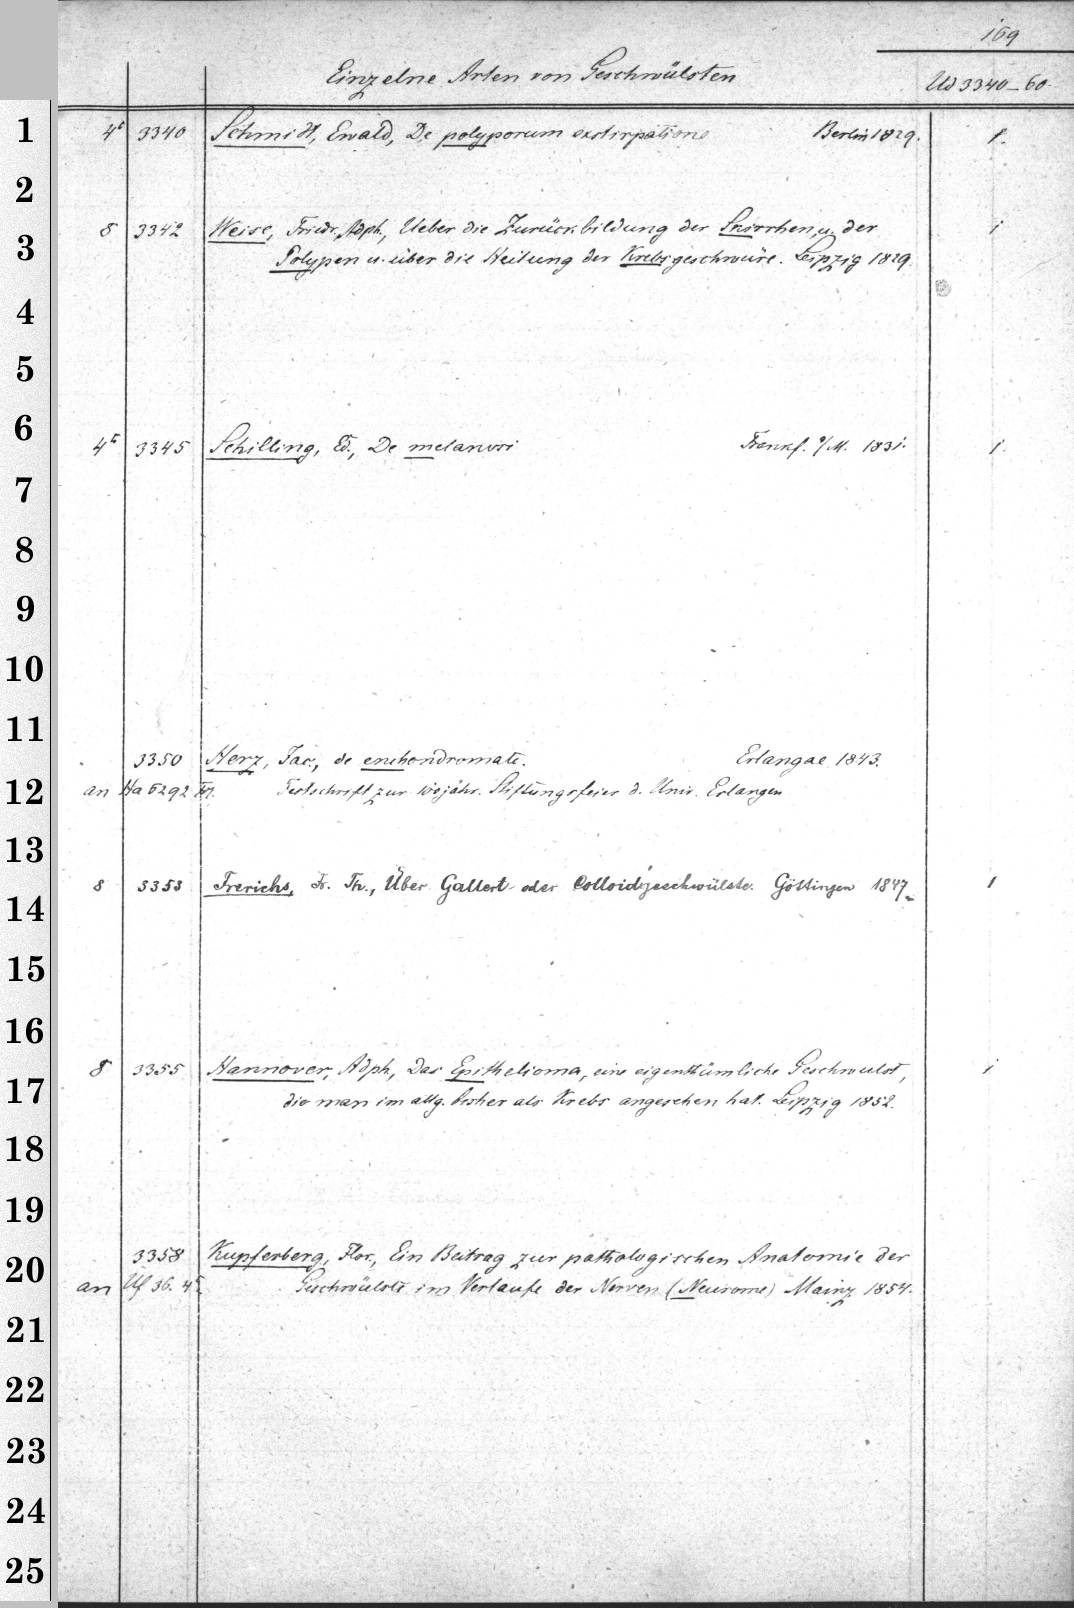 169
Einzelne Arten von Geschwülsten Ud 3340-60.
1 4° 3340 Schmidt, Ewald, De polyporum exstirpatione Berlin 1829. 1.
2
8 3342 Weise, Friedr. Adph., Ueber die Zurückbildung der Skirrhen, u. der 1
3 Polypen u. über die Heilung der Krebsgeschwüre. Leipzig 1829.
4
5
6
4° 3345 Schilling, Ed., De melanosi Frankf. a/M. 1831. 1.
7
8
9
10
11
3350 Herz, Jac., de enchondromate. Erlangae 1843.
12 an Ha 5292 Festschrift zur 100jähr. Stiftungsfeier d. Univ. Erlangen
13
8 3353 Frerichs, Fr. Th., Über Gallert- oder Colloidgeschwülste. Göttingen 1847. 1
14
15
16
8 3355 Hannover, Adph., Das Epithelioma, eine eigenthümliche Geschwulst, 1
17 die man im allg. bisher als Krebs angesehen hat. Leipzig 1852.
18
19
3358 Kupferberg, Flor., Ein Beitrag zur pathologischen Anatomie der
20 an Uf 36. 4° Geschwülste im Verlaufe der Nerven (Neurome) Mainz 1854.
21
22
23
24
25